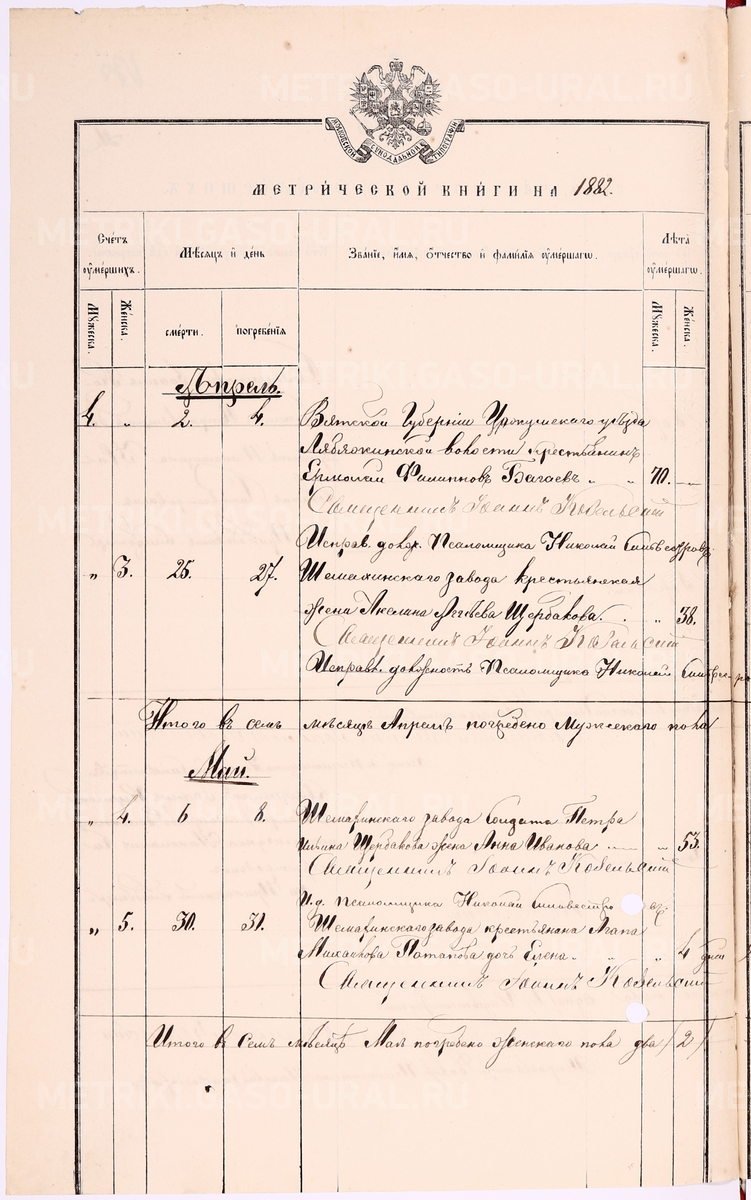 МОСКОВСКОЙ СѴНОДАЛЬНОЙ ТИПОГРАФІИ
МЕТРИ́ЧЕСКОЙ КНИ́ГИ НА 1882.
Сче́тъ оу҆ме́ршихъ.
Мѣ́сяцъ и҆ де́нь
Зва́нїе, и҆́мя, ѻ҆́тчество и҆ фами́лїя оу҆ме́ршагѡ.
Лѣ́та оу҆ме́ршагѡ.
Мꙋ́жеска.
Же́нска.
сме́рти.
погребе́нїя
Мꙋ́жеска.
Же́нска.
Апрель.
4. " 2. 4. Вятской Губерніи Уржумскаго уѣзда
Лебяжинской волости крестьянинъ
Ермолай Филиповъ Багаевъ " " 70. —
Священникъ Іоаннъ Кобельскій
Исправ. долж. Псаломщика Николай
" 3. 25. 27. Шемахинскаго завода крестьянская
жена Акелина Щербакова. " 38.
Священникъ Іоаннъ Кобельскій
Исправл. должность Псаломщика Николай
Итого въ семъ мѣсяцѣ Апрелѣ погребено Мужескаго пола
Май.
" 4. 6 8. Шемахинскаго завода Солдата Петра
Щербакова жена Анна Иванова — " 53.
Священникъ Іоаннъ Кобельскій
И. д. псаломщика Николай
" 5. 30. 31. Шемахинскаго завода крестьянина Агапа
Михайлова Потапова дочь Елена. " " 4 дней
Священникъ Іоаннъ Кобельскій
Итого въ Семъ мѣсяцѣ Маѣ погребено женскаго пола два (2)
METRIKI.GASO-URAL.RU